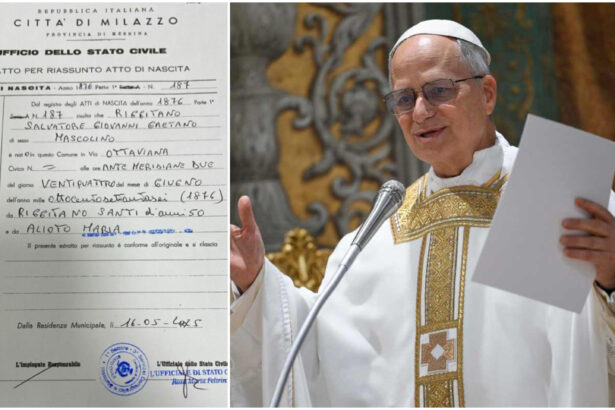 REPUBBLICA ITALIANA
CITTÀ DI MILAZZO
PROVINCIA DI MESSINA
UFFICIO DELLO STATO CIVILE
ATTO PER RIASSUNTO ATTO DI NASCITA
I NASCITA - Anno 1876 Parte 1ª N. 187
Dal registro degli ATTI di NASCITA dell'anno 1876 Parte 1ª
N. 187 risulta che RIGGITANO
SALVATORE GIOVANNI GAETANO
di sesso MASCOLINO
è nat O in questo Comune in Via OTTAVIANA
Civico N. = alle ore ANTE MERIDIANE DUE
del giorno VENTIQUATTRO del mese di GIUGNO
dell'anno mille OTTOCENTOSETTANTASEI (1876)
da RIGGITANO SANTI d'anni 50
e da ALIOTO MARIA
Il presente estratto per riassunto è conforme all'originale e si rilascia
Dalla Residenza Municipale, lì 16-05-2025
L'Impiegato Responsabile
L'Ufficiale dello Stato Civile
L'UFFICIALE DI STATO C
Rosa Maria Feltrin